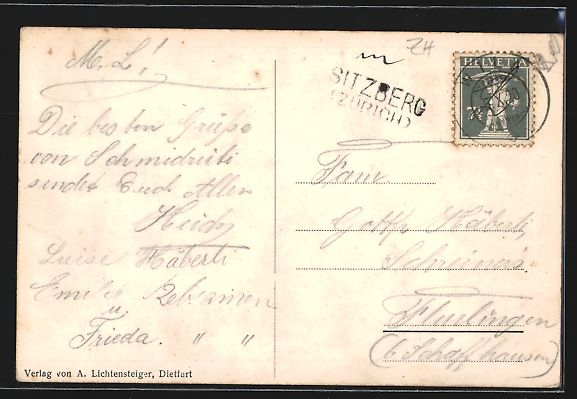 M. L!
Die besten Grüsse
von Schmidrüti
sendet Euch Allen
Heidy
Luise Häberli
Emilie Rebsamen
u.
Frieda. " "
Verlag von A. Lichtensteiger, Dietfurt
24
SITZBERG
(ZÜRICH)
HELVETIA
7½
Fam.
Gottfr. Häberli,
Schreiners.
Flurlingen
(b/ Schaffhausen)